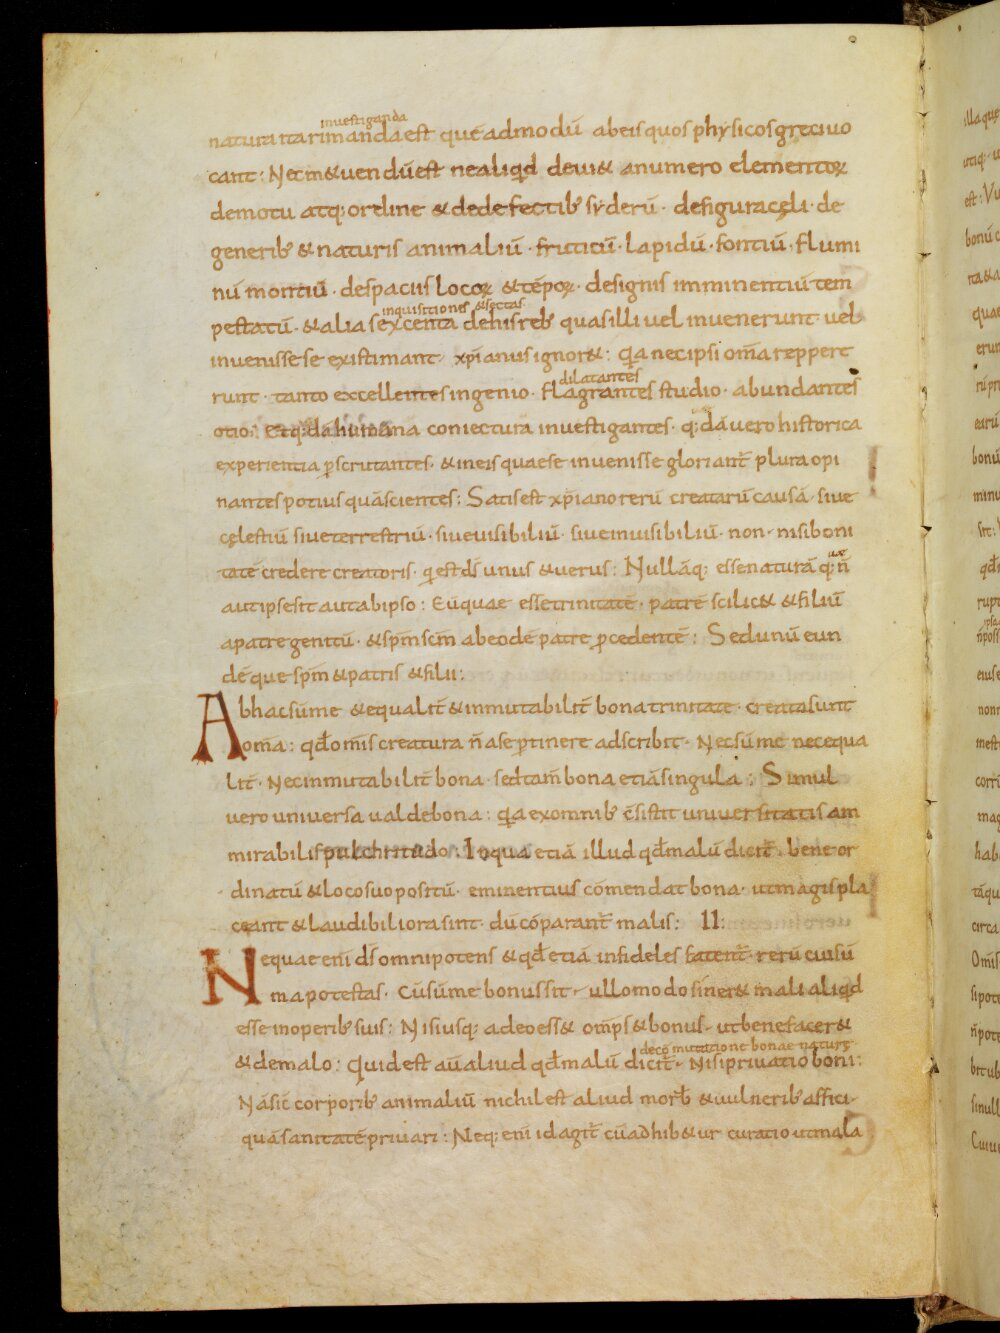 inuestiganda
natura ita rimanda est quēadmodū abeis quos physicos greciuo
cant: Nec metuendū est nealiqd deui& anumero elementoꝝ
demotu atq; ordine & dedefectib; syderū · defiguracęli · de
generib; & naturis animaliū · fruticū · lapidū · fontiū · flumi
nū montiū · despaciis locoꝝ & tēpoꝝ · designis imminentiū tem
inquisitiones &sectas
pestatū · & alia sexcenta dehis reb; quas illi uel inuenerunt uel
inuenisse se existimant · xp̄ianus ignor& : qa nec ipsi om̄a reppert
dilatantes
runt · tanto excellentes ingenio · flagrantes studio · abundantes
otio: & q;dā humana coniectura inuestigantes · q;dā uero historica
experientia pscrutantes · & ineis quaese inuenisse gloriant̄ plura opi
nantes potius quā scientes: Satis est xp̄iano rerū creatarū causā · siue
cęlestiū siue terrestriū · siue uisibiliū · siue inuisibiliū · non · nisi boni
tate credere creatoris · qi est ds̄ unus & uerus: Nullāq; esse naturā q; n̄
uae
aut ipse sit aut ab ipso: Eūquae esse trinitatē · patrē scilic& & filiū
apatre genitū · & sp̄m sc̄m abeodē patre pcedentē: Sed unū eun
dēque sp̄m & patris & filii:
Ab hac sūme & equalit̄ & inmutabilit̄ bona trinitate · creata sunt
om̄a: qd̄ om̄is creatura n̄ ase ptinere adscribit · Nec sūme nec equa
lit̄ · Nec inmutabilit̄ bona · sed tam̄ bona etiā singula: Simul
uero uniuersa ualde bona: qa exomnib; c̄sistit uniuersitatis am
mirabilis pulchritudo. In qua etiā illud qd̄ malū dicit̄ · bene or
dinatū & loco suo positū · eminentius cōmendat bona · ut magis pla
ceant & laudibiliora sint · dū cōparant̄ malis: II:
Neque eni ds̄ omnipotens & qd̄ etiā infideles fatent̄ · rerū cui sū
ma potestas · cū sūme bonus sit · ullo modo siner& mali aliqd
esse inoperib; suis: Nisi usq; adeo ess& om̄ps & bonus · ut bene facer&
decōmutatione bonae naturę
& demalo: Quid est aū aliud qd̄ malū dicit̄ · Nisi priuatio boni:
Nā sic̄ corporib; animaliū nichil est aliud morb; & uulnerib; affici ·
quā sanitatē priuari: Neq; eni id agit̄ cū adhib&ur curatio ut mala